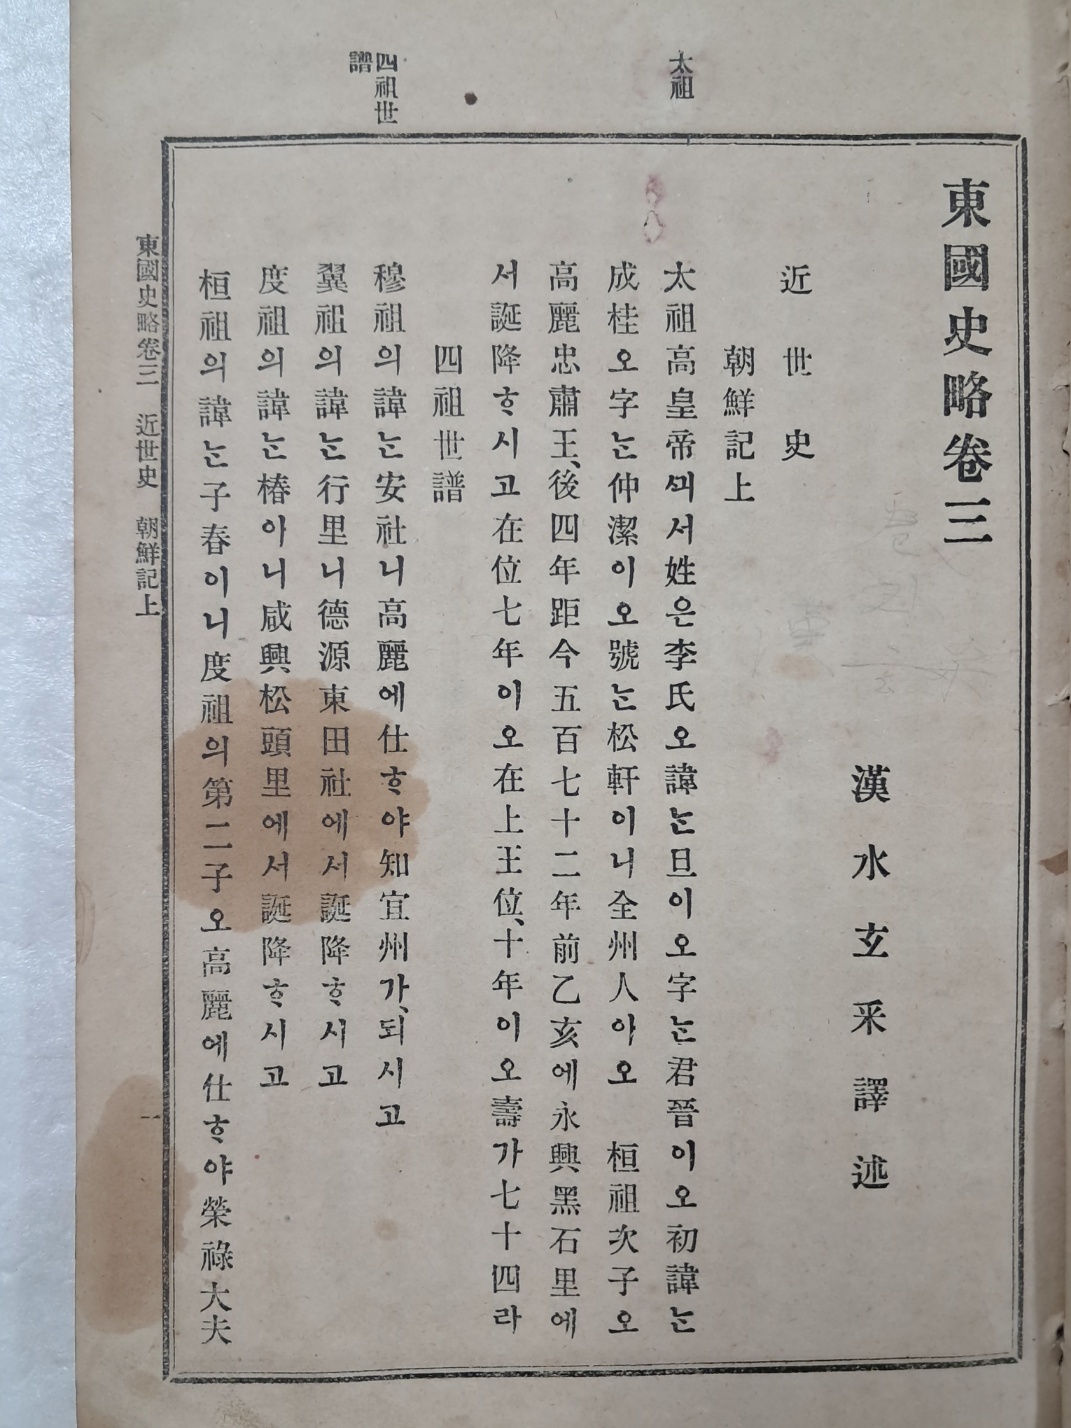 東國史略卷三
漢水玄采譯述
近世史
朝鮮記上
太祖
太祖高皇帝ᄭᅴ서姓은李氏오諱ᄂᆞᆫ旦이오字ᄂᆞᆫ君晉이오初諱ᄂᆞᆫ
成桂오字ᄂᆞᆫ仲潔이오號ᄂᆞᆫ松軒이니全州人아오 桓祖次子오
高麗忠肅王、後四年距今五百七十二年前乙亥에永興黑石里에
서誕降ᄒᆞ시고在位七年이오在上王位、十年이오壽가七十四라
四祖世譜
四祖世
譜
穆祖의諱ᄂᆞᆫ安社니高麗에仕ᄒᆞ야知宜州가、되시고
翼祖의諱ᄂᆞᆫ行里니德源東田社에서誕降ᄒᆞ시고
度祖의諱ᄂᆞᆫ椿아니咸興松頭里에서誕降ᄒᆞ시고
桓祖의諱ᄂᆞᆫ子春이니度祖의第二子오高麗에仕ᄒᆞ야榮祿大夫
東國史略卷三 近世史 朝鮮記上
一